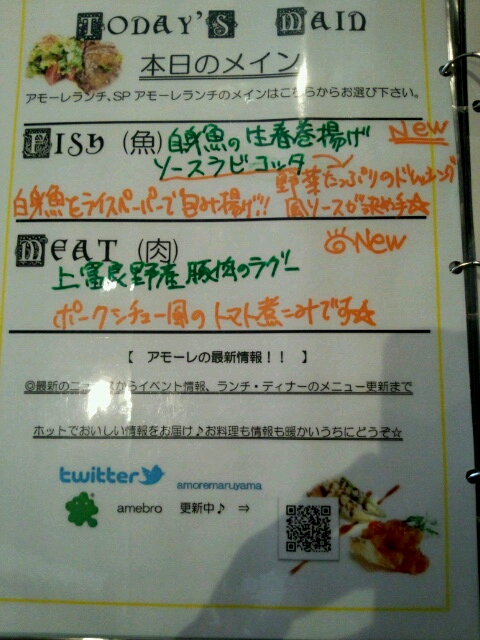 TODAY'S MAIN
本日のメイン
アモーレランチ、SPアモーレランチのメインはこちらからお選び下さい。
FISH (魚) 白身魚の生春巻揚げ New
ソースラビゴッタ
野菜たっぷりのドレッシング
白身魚をライスペーパーで包み揚げ!! 風ソースが決め手☆
MEAT (肉) New
上富良野産 豚肉のラグー
ポークシチュー風のトマト煮込みです☆
【 アモーレの最新情報！！ 】
◎最新のニュースからイベント情報、ランチ・ディナーのメニュー更新まで
ホットでおいしい情報をお届け♪お料理も情報も暖かいうちにどうぞ☆
twitter amoremaruyama
amebro 更新中♪ ⇒